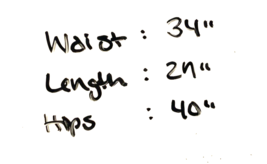 Waist : 34"
Length : 27"
Hips : 40"